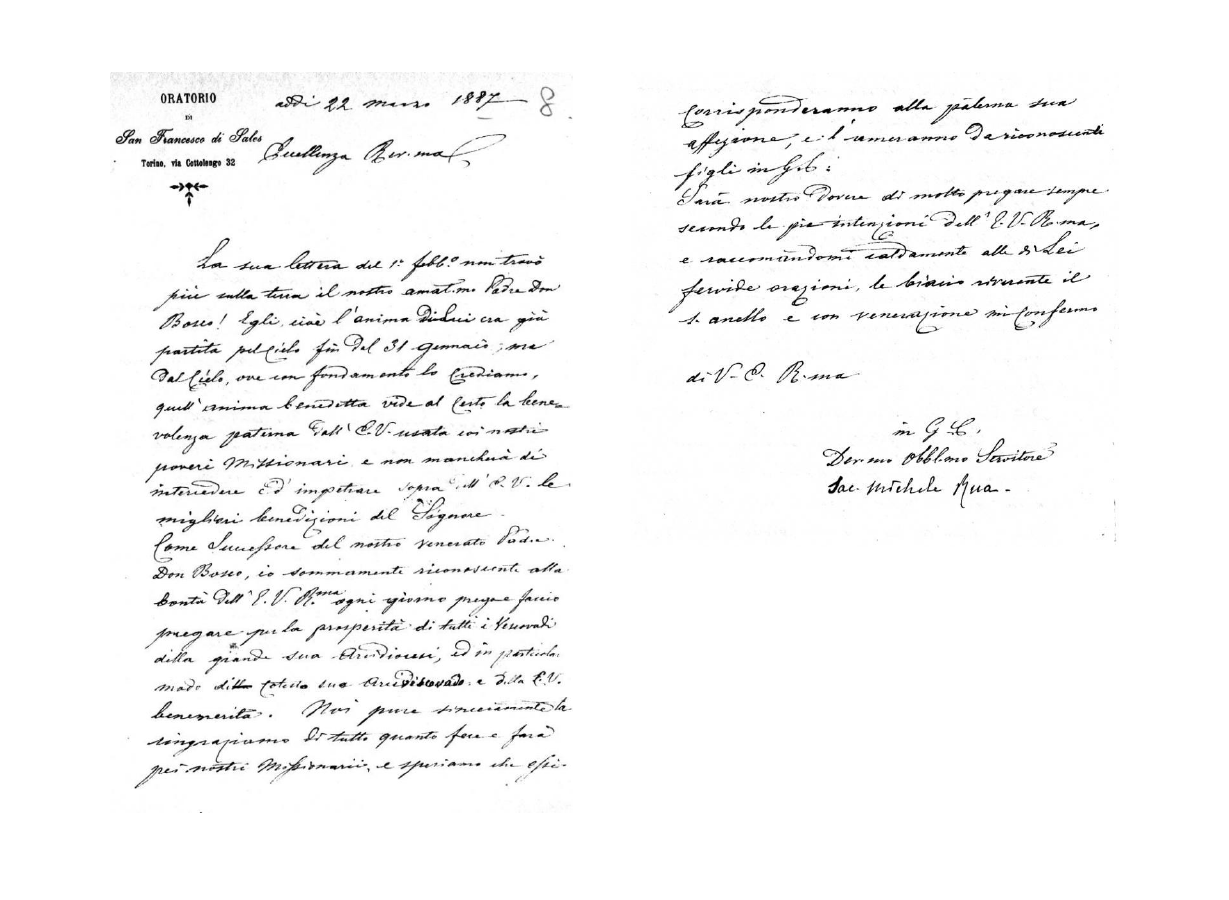 ORATORIO
DI
San Francesco di Sales
Torino, via Cottolengo 32
addì 22 marzo 1887
8
Eccellenza Rev.ma
La sua lettera del 1º febb.º non trovò
più sulla terra il nostro amat.imo Padre Don
Bosco! Egli, cioè l'anima di Lui era già
partita pel Cielo fin dal 31 Gennaio; ma
dal Cielo, ove con fondamento lo crediamo,
quell'anima benedetta vede al certo la bene=
volenza paterna dall'E.V. usata coi nostri
poveri Missionari e non mancherà di
intercedere ed impetrare sopra all'E.V. le
migliori benedizioni del Signore.
Come Successore del nostro venerato Padre
Don Bosco, io sommamente riconoscente alla
bontà dell'E.V.R.ma ogni giorno prego e faccio
pregare per la prosperità di tutti i Vescovadi
della grande sua Arcidiocesi, ed in particolar
modo cotesto suo Arcivescovado e della E.V.
benemerita. Noi pure sinceramente la
ringraziamo di tutto quanto fece e farà
pei nostri Missionarii, e speriamo che essi
corrisponderanno alla paterna sua
affezione, e l'ameranno da riconoscenti
figli in G.C.
Sarà nostro dovere di molto pregare sempre
secondo le pie intenzioni dell'E.V.R.ma,
e raccomandomi caldamente alle di Lei
fervide orazioni, le bacio riverente il
s. anello e con venerazione mi confermo
di V. E. R.ma
in G. C.
Dev.mo Obbl.mo Servitore
Sac. Michele Rua.